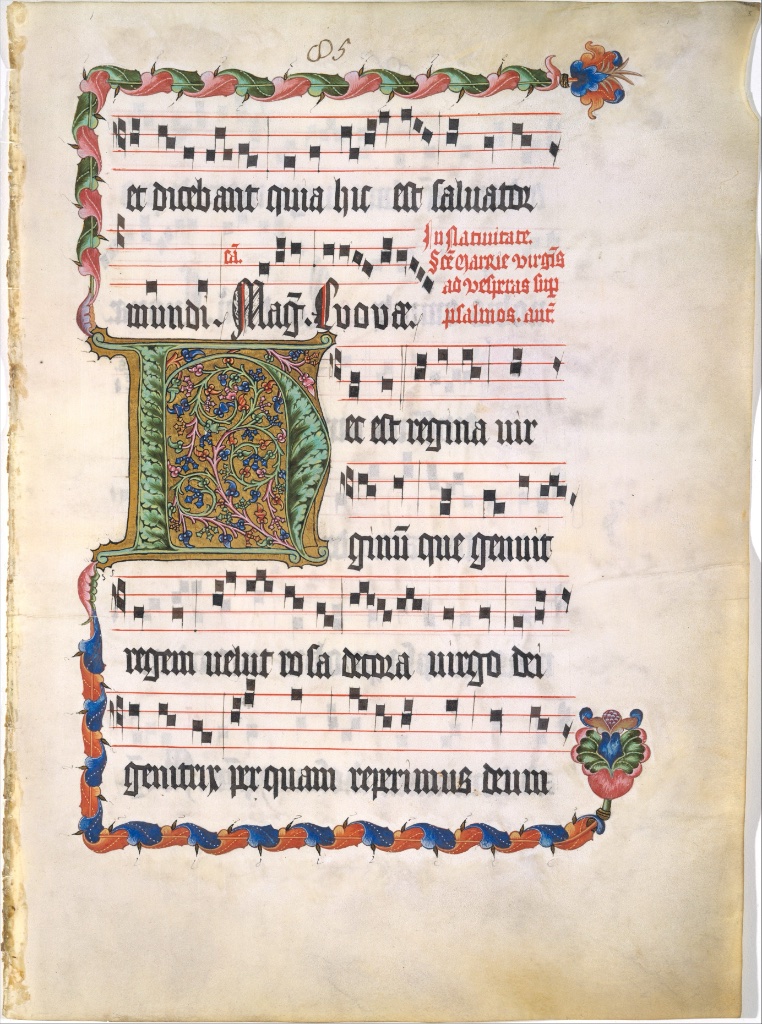 85
et dicebant quia hic est saluator
ca.
In Natiuitate.
Sce Marie virgis
ad vesperas sup
psalmos. ant.
mundi. Mag. Evova.
Hec est regina uir
ginu que genuit
regem uelut rosa decora uirgo dei
genitrix per quam reperimus deum